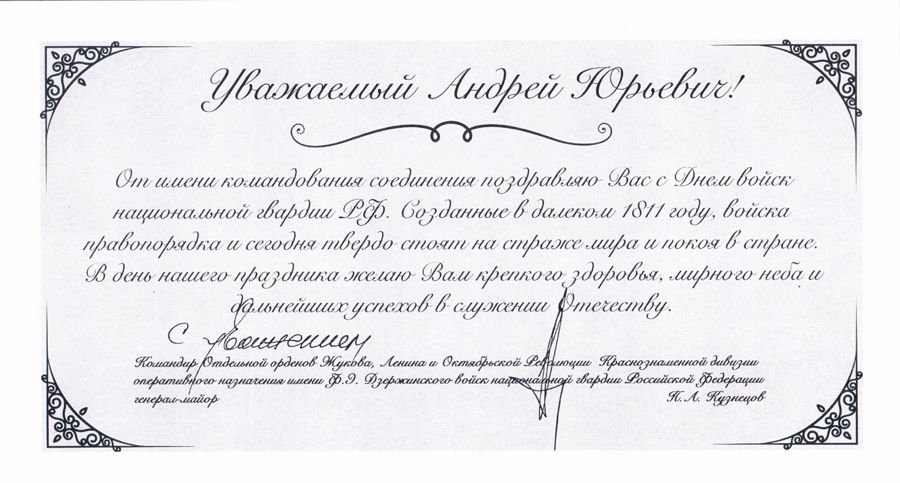 Уважаемый Андрей Юрьевич!
От имени командования соединения поздравляю Вас с Днем войск
национальной гвардии РФ. Созданные в далеком 1811 году, войска
правопорядка и сегодня твердо стоят на страже мира и покоя в стране.
В день нашего праздника желаю Вам крепкого здоровья, мирного неба и
дальнейших успехов в служении Отечеству.
С уважением
Командир Отдельной орденов Жукова, Ленина и Октябрьской Революции Краснознаменной дивизии
оперативного назначения имени Ф.Э. Дзержинского войск национальной гвардии Российской Федерации
генерал-майор Н.А. Кузнецов